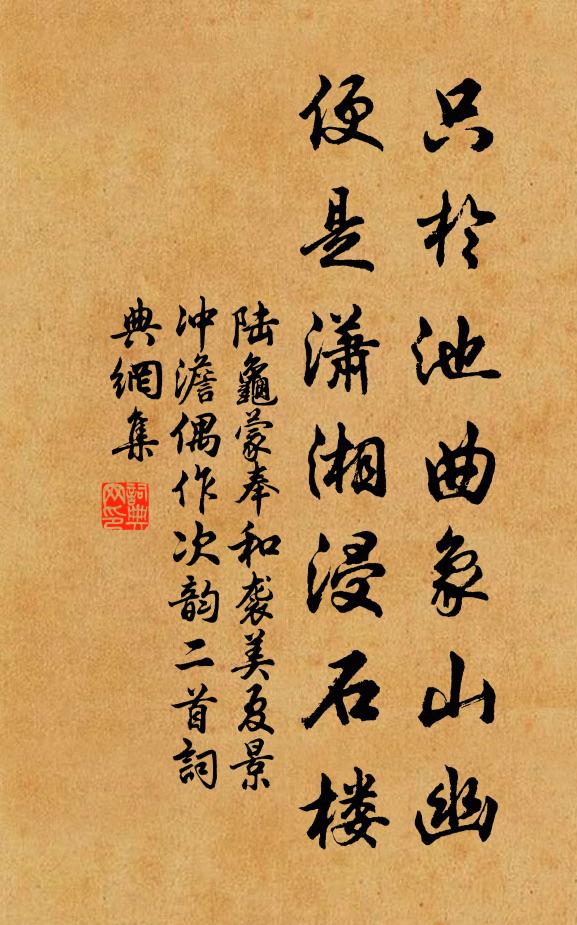 只於池曲象山幽
便是瀟湘浸石楼
陆龜蒙奉和袭美夏景
冲澹偶作次韵二首詞
典網集
詞典
网印